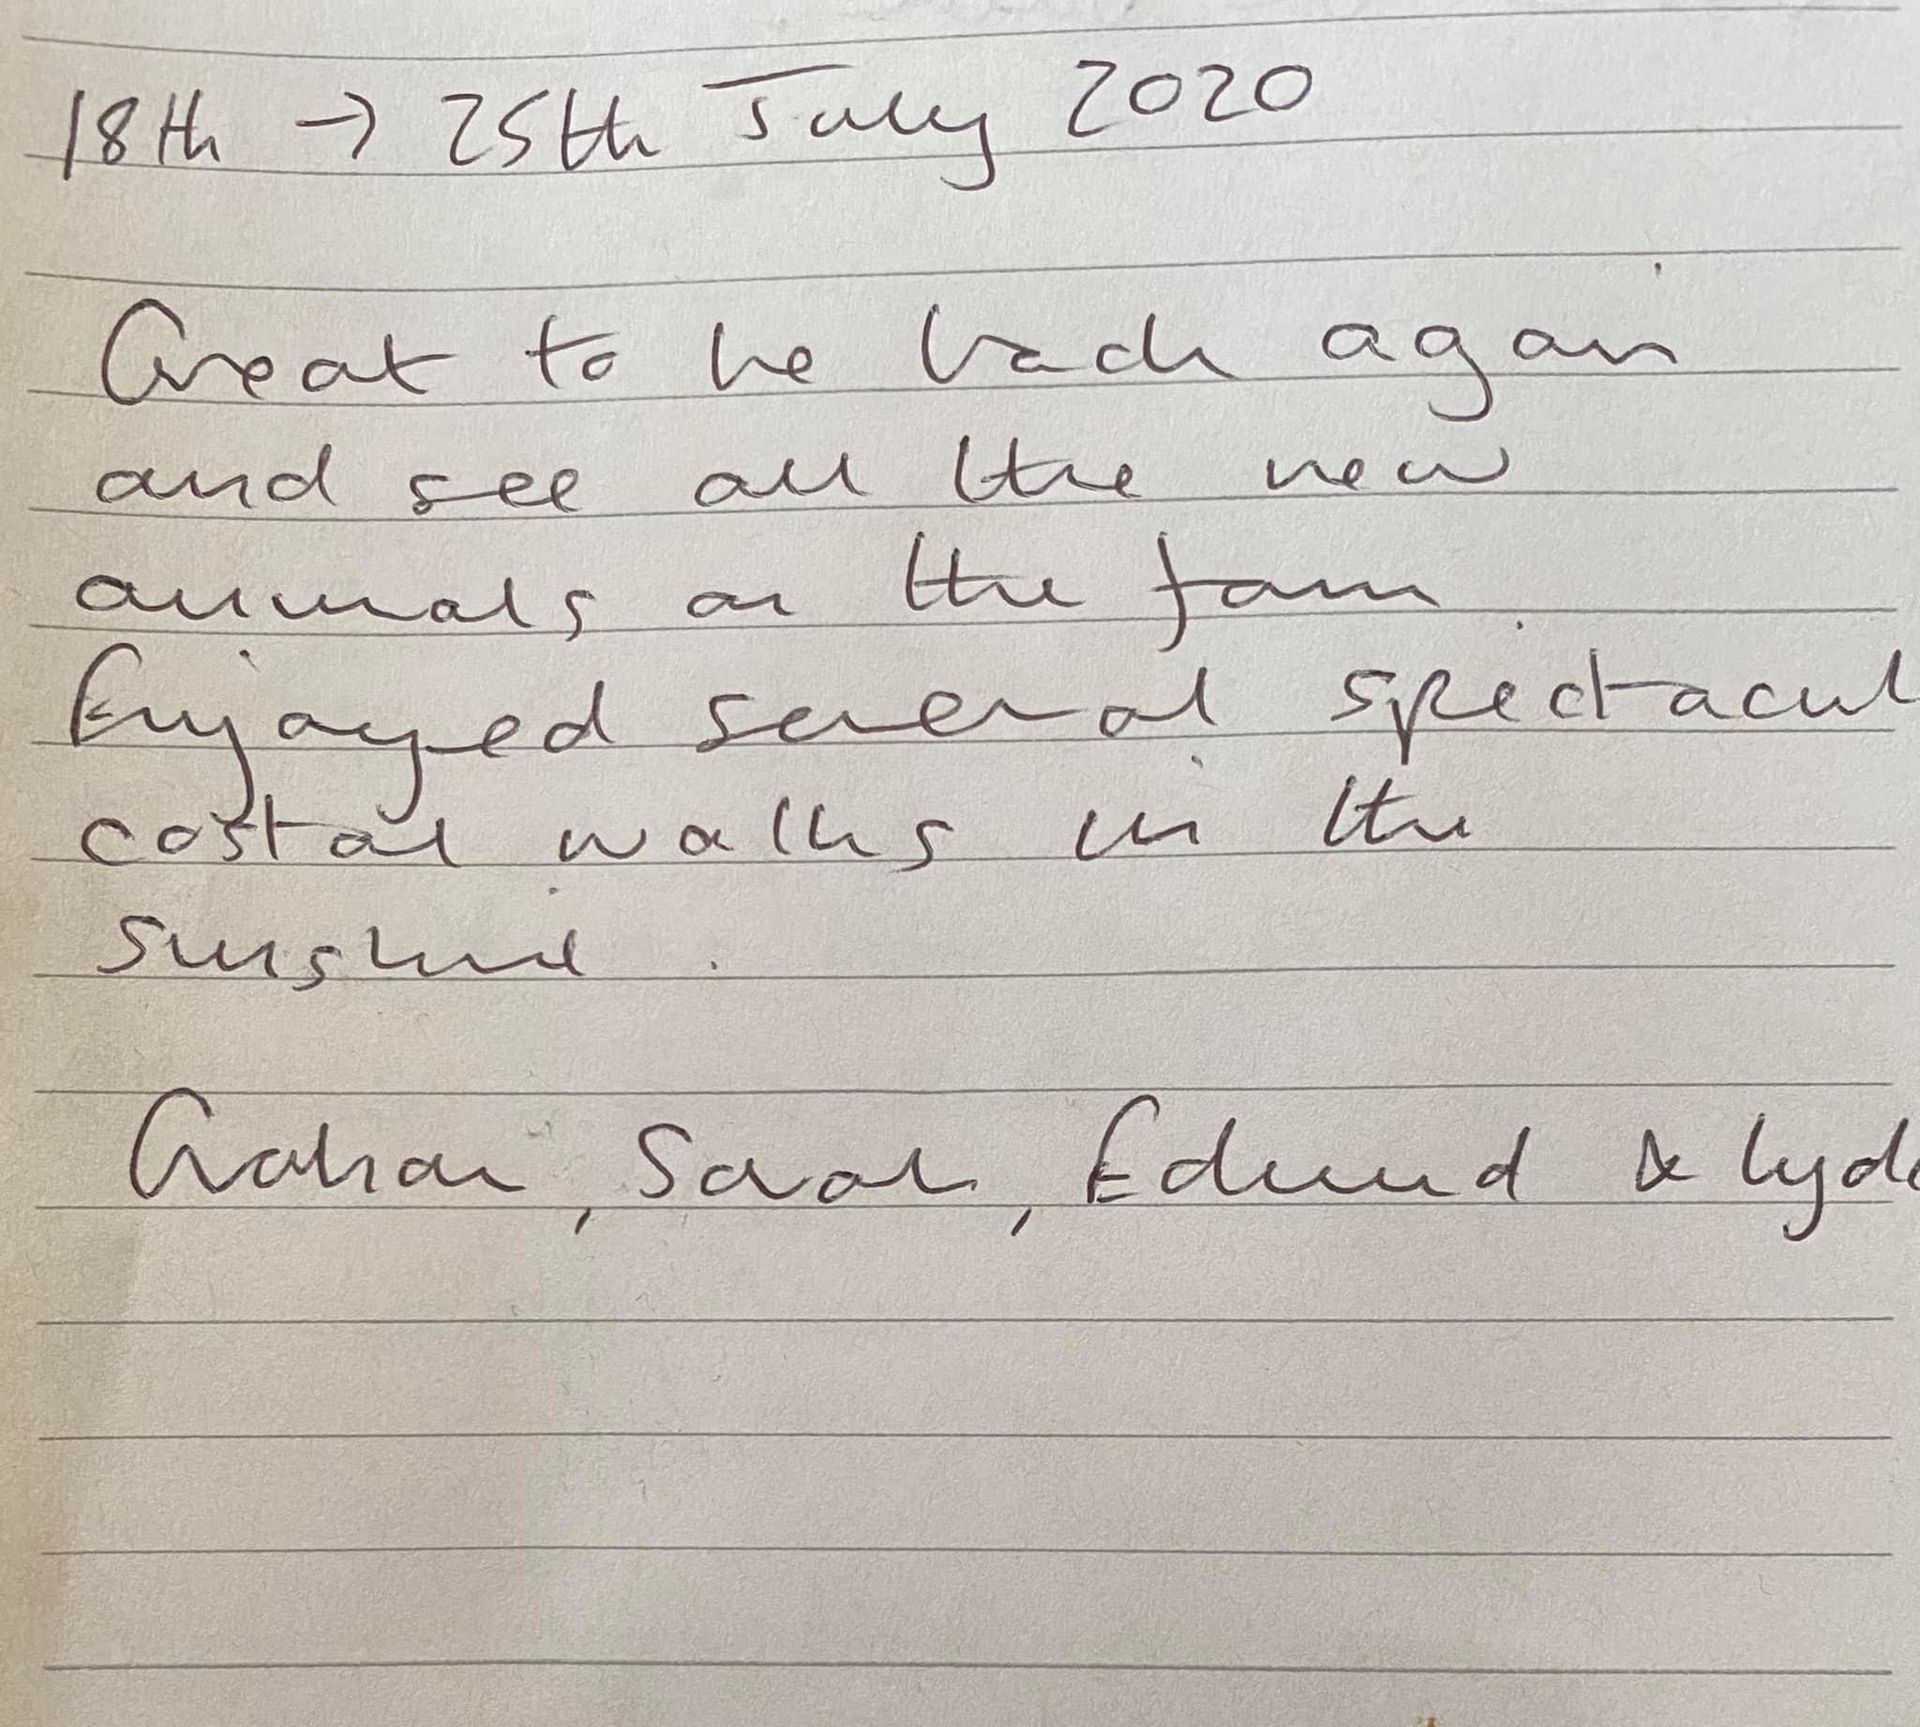 18th → 25th July 2020
Great to be back again
and see all the new
animals on the farm.
Enjoyed several spectacul
costal walks in the
sunshine.
Graham, Sarah, Edmund & Lyd